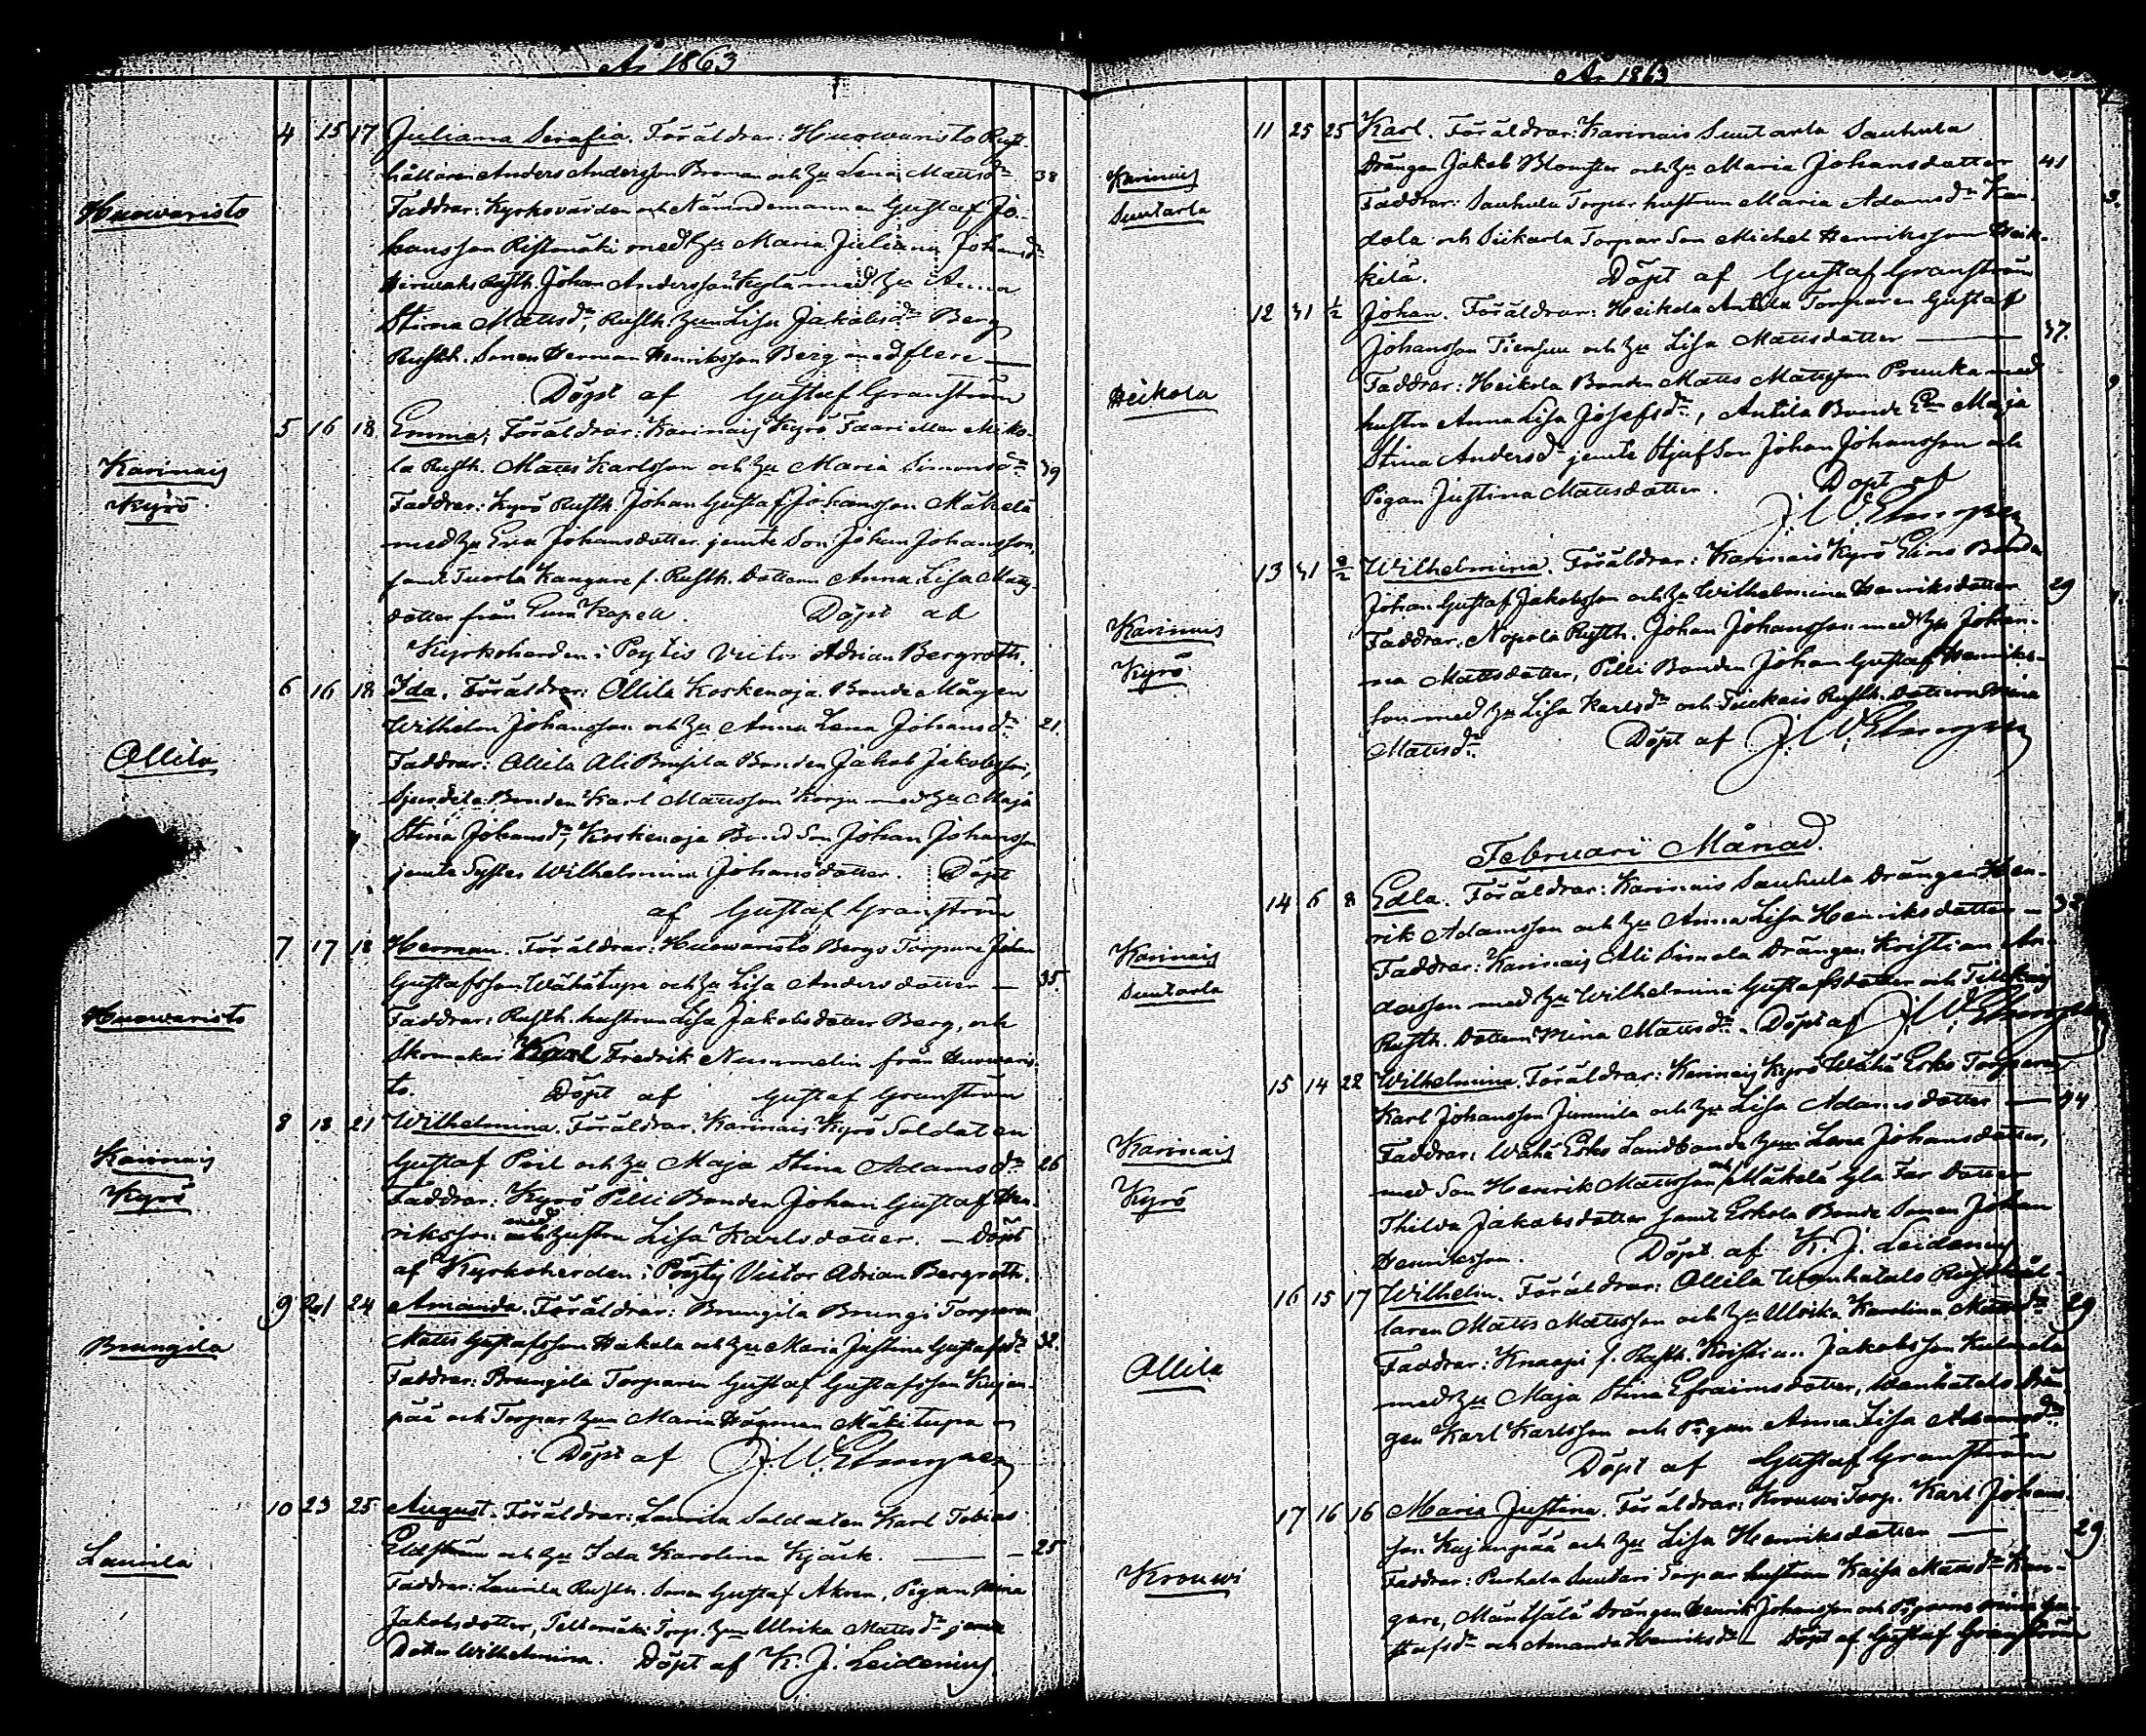 År 1863
4 15 17 Juliana Serafia. Föräldrar: Huowaristo Rust-
hållaren Anders Andersson Broman och hu Lena Mattsdr 38
Huowaristo
Faddrar: Kyrkovärden och Nämndemannen Gustaf Jo-
hansson Ristomäki med hu Maria Juliana Johansdr
Rusth. Johan Andersson Kylä med hu Anna
Stina Mattsdr, Rusth. hun Lisa Jakobsdr Berg
Rusth. Sonen Herman Henriksson Berg med flere
Döpt af Gustaf Granström
5 16 18 Emma, Föräldrar: Karinais Kyrö eller Miko-
la Rusth. Matts Karlsson och hu Maria Simonsdr 39
Karinais
Kyrö
Faddrar: Kyrö Rusth. Johan Gustaf Johansson Mäkelä
med hu Eva Johansdotter jemte Son Johan Johansson,
samt Tuorla Kangare f. Rusth. Dottern Anna Lisa Matts-
dotter från Kapell. Döpt af
Kyrkoherden i Pöytis Victor Adrian Bergroth.
6 16 18 Ida. Föräldrar: Ollila Koskenoja Bonde Mågen
Wilhelm Johansson och hu Anna Lena Johansdr 21
Ollila
Faddrar: Ollila Ali Bonden Jakob Jakobsson,
Bonden Karl Mattsson med hu Maja
Stina Johansdr, Koskenoja Bond Son Johan Johansson
jemte Syster Wilhelmina Johansdotter. Döpt
af Gustaf Granström
7 17 18 Herman. Föräldrar: Huowaristo Bergs Torpare Johan
Gustafsson Wähätupa och hu Lisa Andersdotter 35
Huowaristo
Faddrar: Rusth. hustrun Lisa Jakobsdotter Berg, och
Skomakar Karl Fredrik Nummelin från Huowaris-
to. Döpt af Gustaf Granström
8 18 21 Wilhelmina. Föräldrar. Karinais Kyrö Soldaten
Gustaf Poil och hu Maja Stina Adamsdr 26
Karinais
Kyrö
Faddrar: Kyrö Pilli Bonden Johan Gustaf Hen-
riksson med hustru Lisa Karlsdotter. — Döpt
af Kyrkoherden i Pöytis Victor Adrian Bergroth.
9 21 24 Amanda. Föräldrar: Brungila Brungi Torparen
Matts Gustafsson Hakala och hu Maria Justina Gustafsdr 32.
Brungila
Faddrar: Brungila Torparen Gustaf Gustafsson Kujan-
pää och Torpar hun Maria Hägman Mäkitupa
Döpt af J. W. Elmgren
10 23 25 August. Föräldrar: Laurila Soldaten Karl Tobias
och hu Ida Karolina Kjäck. — 25
Laurila
Faddrar: Laurila Rusth. Sonen Gustaf Akren, Pigan Mina
Jakobsdotter, Torp. hun Ulrika Mattsdr jemte
Dotter Wilhelmina. Döpt af K. J. Leidenius.
År 1863
11 25 25 Karl. Föräldrar: Karinais Suutarla Sauhula
Drängen Jakob Blomster och hu Maria Johansdotter 41
Karinais
Suutarla
Faddrar: Sauhula Torpar hustrun Maria Adamsdr
och Torpar Son Michel Henriksson Heik-
kilä. Döpt af Gustaf Granström
12 31 1/2 Johan. Föräldrar: Heikola Antila Torparen Gustaf
Johansson och hu Lisa Mattsdotter 37.
Heikola
Faddrar: Heikola Bonden Matts Mattsson Pruuka med
hustru Anna Lisa Josefsdr, Antila Bonde Maja
Stina Andersdr jemte Styfson Johan Johansson och
Pigan Justina Mattsdotter. Döpt af
J. W. Elmgren
13 31 2/2 Wilhelmina. Föräldrar: Karinais Kyrö Bonden
Johan Gustaf Jakobsson och hu Wilhelmina Henriksdotter 29
Karinais
Kyrö
Faddrar: Nopola Rusth. Johan Johansson med hu Johan-
na Mattsdotter, Pilli Bonden Johan Gustaf Henriks-
son med hu Lisa Karlsdr och Rusth. Dottern Mina
Mattsdr. Döpt af J. W. Elmgren
Februari Månad.
14 6 8 Edla. Föräldrar: Karinais Sauhula Drängen Hen-
rik Adamsson och hu Anna Lisa Henriksdotter — 32
Karinais
Suutarla
Faddrar: Karinais Ali Simola Drängen Kristian An-
dersson med hu Wilhelmina Gustafsdotter och
Rusth. Dottern Mina Mattsdr. Döpt af J. W. Elmgren
15 14 22 Wilhelmina. Föräldrar: Karinais Kyrö Wähä Esko Torparen
Karl Johansson Junnila och hu Lisa Adamsdotter — 44
Karinais
Kyrö
Faddrar: Wähä Esko Landbonde hun Lena Johansdotter,
med Son Henrik Mattsson och Mäkelä Dotter
Thilda Jakobsdotter samt Eskola Bonde Sonen Johan
Henriksson. Döpt af K. J. Leidenius
16 15 17 Wilhelm. Föräldrar: Ollila Wanhatalo Rusthål-
laren Matts Mattsson och hu Ulrika Karolina Mattsdr 29
Ollila
Faddrar: Knaapi f. Rusth. Kristian Jakobsson
med hu Maja Stina Efraimsdotter, Wanhatalo Drän-
gen Karl Karlsson och Pigan Anna Lisa Adamsdr
Döpt af Gustaf Granström
17 16 16 Maria Justina. Föräldrar: Krouwi Torp. Karl Johans-
son Kujanpää och hu Lisa Henriksdotter — 29
Krouwi
Faddrar: Purhala Suutari Torpar hustrun Kaisa Mattsdr Kan-
gare, Mäntsälä Drängen Henrik Johansson och Pigorna Gu-
stafsdr och Amanda Henriksdr — Döpt af Gustaf Granström